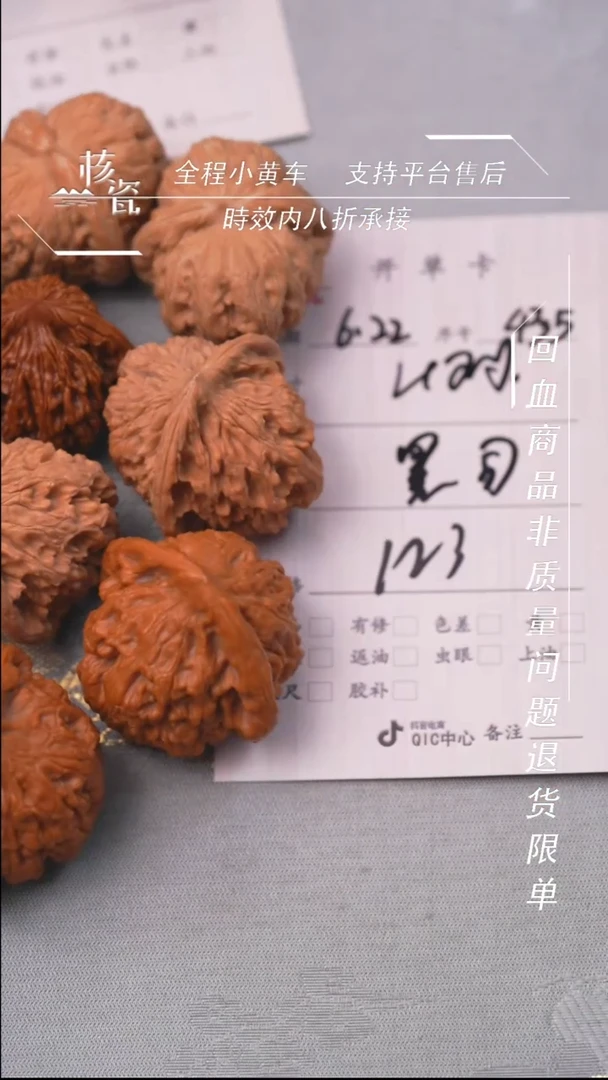 核瓷
全程小黄车 支持平台售后
時效内八折承接
开单卡
6.22
435
黑
123
有修 色差
返油 虫眼 上油
尺 胶补
抖音电商
QIC中心 备注
回血商品非质量问题退货限单